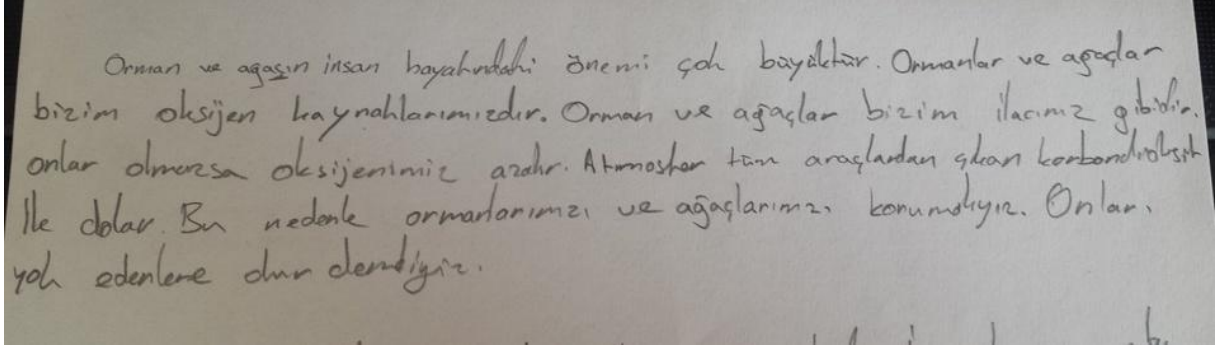 Orman ve ağaçın insan hayatındaki önemi çok büyüktür. Ormanlar ve ağaçlar
bizim oksijen kaynaklarımızdır. Orman ve ağaçlar bizim ilacımız gibidir.
onlar olmazsa oksijenimiz azalır. Atmosfer tüm araçlardan çıkan karbondioksit
ile dolar. Bu nedenle ormanlarımızı ve ağaçlarımızı korumalıyız. Onları
yok edenlere dur demeliyiz.